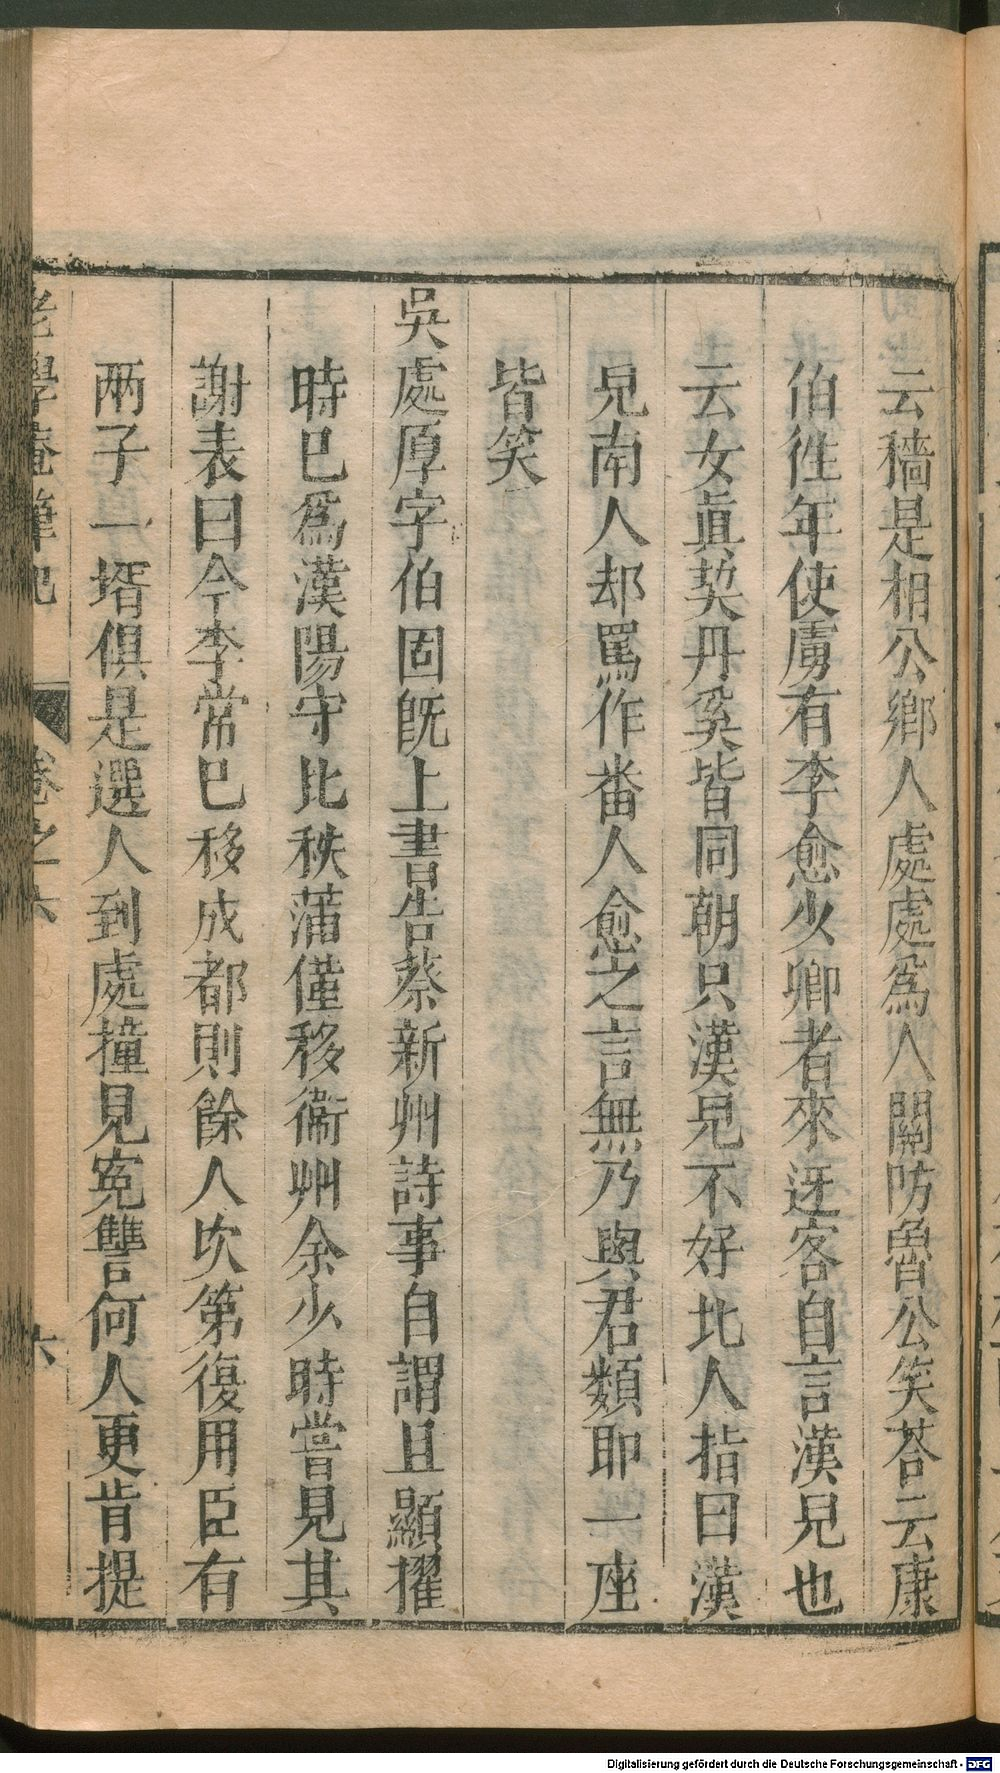 云穡是相公鄉人處處爲人關防魯公笑荅云康
伯徃年使虜有李愈少卿者來迓客自言漢兒也
云女眞契丹奚皆同朝只漢兒不好北人指曰漢
兒南人却罵作番人愈之言無乃與君類耶一座
皆笑
吳處厚字伯固旣上書告蔡新州詩事自謂且顯擢
時巳爲漢陽守比秩蒲僅移衞州余少時嘗見其
謝表曰今李常巳移成都則餘人坎第復用臣有
兩子一壻俱是選人到處撞見寃讐何人更肯提
老學庵筆記 卷之六 六
Digitalisierung gefördert durch die Deutsche Forschungsgemeinschaft - DFG